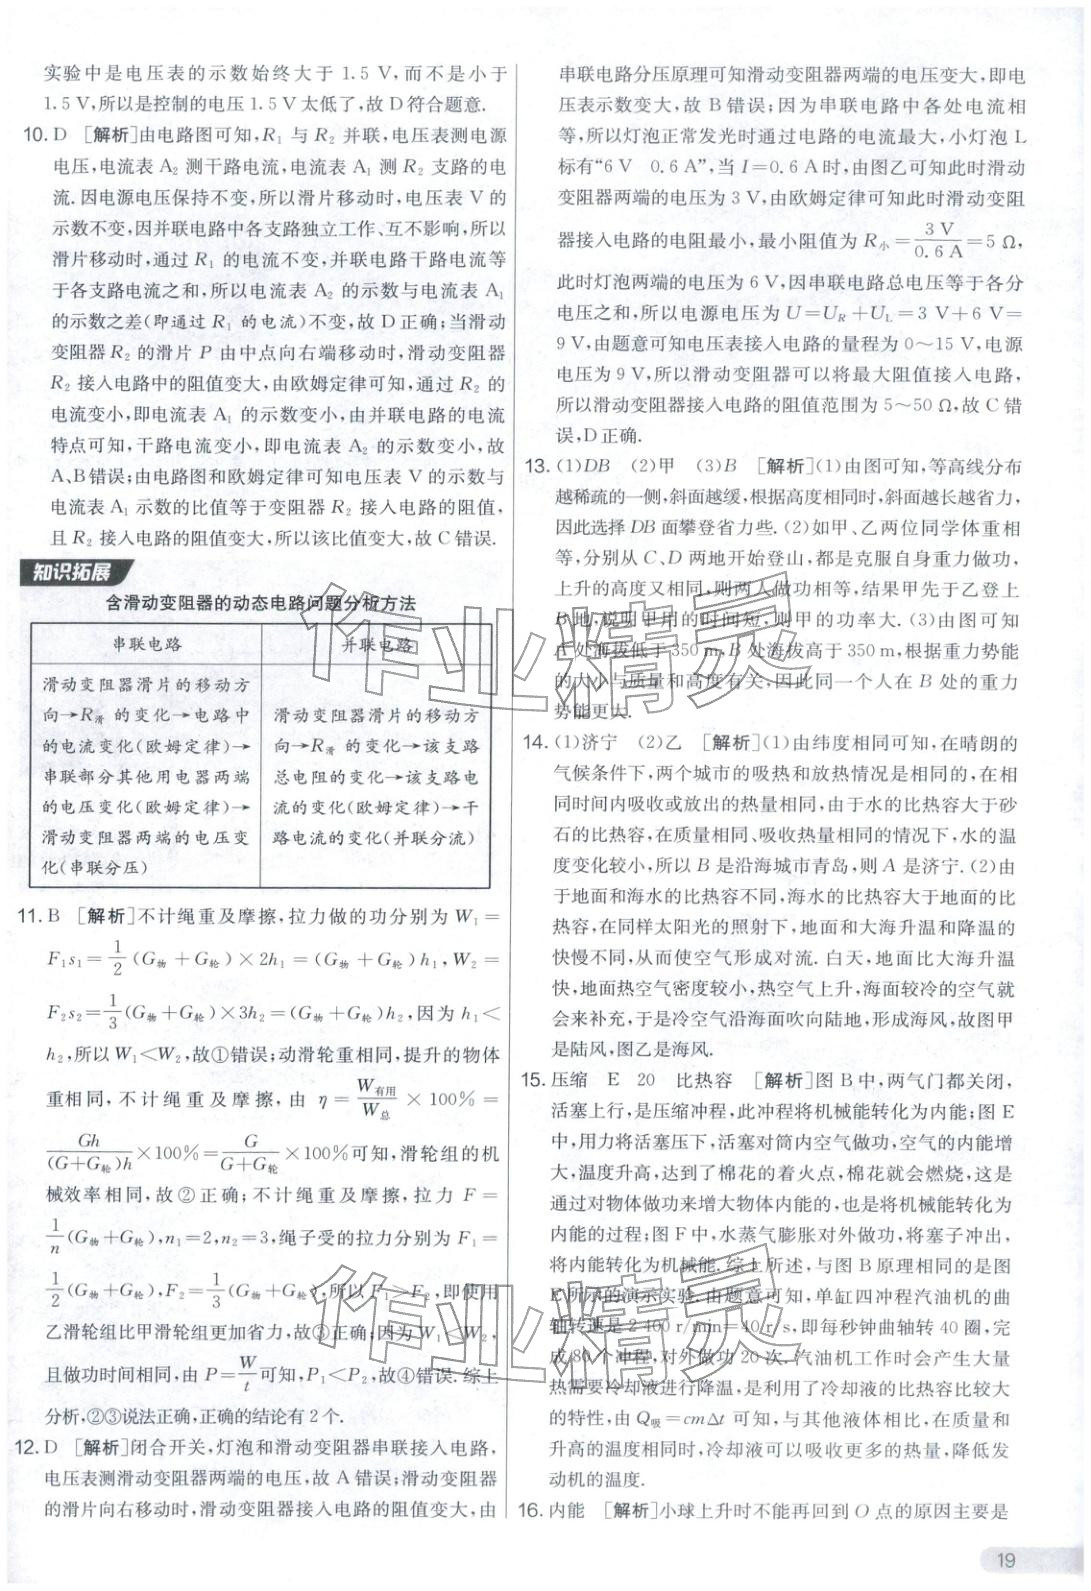 实验中是电压表的示数始终大于 1.5 V,而不是小于
1.5 V,所以是控制的电压 1.5 V 太低了,故 D 符合题意.
10. D [解析]由电路图可知,R₁ 与 R₂ 并联,电压表测电源
电压,电流表 A₂ 测干路电流,电流表 A₁ 测 R₂ 支路的电
流.因电源电压保持不变,所以滑片移动时,电压表 V 的
示数不变,因并联电路中各支路独立工作、互不影响,所以
滑片移动时,通过 R₁ 的电流不变,并联电路干路电流等
于各支路电流之和,所以电流表 A₂ 的示数与电流表 A₁
的示数之差(即通过 R₁ 的电流)不变,故 D 正确;当滑动
变阻器 R₂ 的滑片 P 由中点向右端移动时,滑动变阻器
R₂ 接入电路中的阻值变大,由欧姆定律可知,通过 R₂ 的
电流变小,即电流表 A₁ 的示数变小,由并联电路的电流
特点可知,干路电流变小,即电流表 A₂ 的示数变小,故
A、B 错误;由电路图和欧姆定律可知电压表 V 的示数与
电流表 A₁ 示数的比值等于变阻器 R₂ 接入电路的阻值,
且 R₂ 接入电路的阻值变大,所以该比值变大,故 C 错误.
知识拓展
含滑动变阻器的动态电路问题分析方法
串联电路 并联电路
滑动变阻器滑片的移动方
向→R滑 的变化→电路中
的电流变化(欧姆定律)→
串联部分其他用电器两端
的电压变化(欧姆定律)→
滑动变阻器两端的电压变
化(串联分压)
滑动变阻器滑片的移动方
向→R滑 的变化→该支路
总电阻的变化→该支路电
流的变化(欧姆定律)→干
路电流的变化(并联分流)
11. B [解析]不计绳重及摩擦,拉力做的功分别为 W₁=
F₁s₁=1/2(G物+G轮)×2h₁=(G物+G轮)h₁,W₂=
F₂s₂=1/3(G物+G轮)×3h₂=(G物+G轮)h₂,因为 h₁<
h₂,所以 W₁<W₂,故①错误;动滑轮重相同,提升的物体
重相同,不计绳重及摩擦,由 η=W有用/W总×100%=
Gh/(G+G轮)h×100%=G/(G+G轮)×100%可知,滑轮组的机
械效率相同,故②正确;不计绳重及摩擦,拉力 F=
1/n(G物+G轮),n₁=2,n₂=3,绳子受的拉力分别为 F₁=
1/2(G物+G轮),F₂=1/3(G物+G轮),所以 F₁>F₂,即使用
乙滑轮组比甲滑轮组更加省力,故③正确;因为 W₁<W₂,
且做功时间相同,由 P=W/t可知,P₁<P₂,故④错误.综上
分析,②③说法正确,正确的结论有 2 个.
12. D [解析]闭合开关,灯泡和滑动变阻器串联接入电路,
电压表测滑动变阻器两端的电压,故 A 错误;滑动变阻器
的滑片向右移动时,滑动变阻器接入电路的阻值变大,由
串联电路分压原理可知滑动变阻器两端的电压变大,即电
压表示数变大,故 B 错误;因为串联电路中各处电流相
等,所以灯泡正常发光时通过电路的电流最大,小灯泡 L
标有“6 V 0.6 A”,当 I=0.6 A 时,由图乙可知此时滑动
变阻器两端的电压为 3 V,由欧姆定律可知此时滑动变阻
器接入电路的电阻最小,最小阻值为 R小=3 V/0.6 A=5 Ω,
此时灯泡两端的电压为 6 V,因串联电路总电压等于各分
电压之和,所以电源电压为 U=U_R+U_L=3 V+6 V=
9 V,由题意可知电压表接入电路的量程为 0~15 V,电源
电压为 9 V,所以滑动变阻器可以将最大阻值接入电路,
所以滑动变阻器接入电路的阻值范围为 5~50 Ω,故 C 错
误,D 正确.
13. (1)DB (2)甲 (3)B [解析](1)由图可知,等高线分布
越稀疏的一侧,斜面越缓,根据高度相同时,斜面越长越省力,
因此选择 DB 面攀登省力些.(2)如甲、乙两位同学体重相
等,分别从 C、D 两地开始登山,都是克服自身重力做功,
上升的高度又相同,则两人做功相同,结果甲先于乙登上
B 地,说明甲用的时间短,则甲的功率大.(3)由图可知
A 处海拔低于 350 m,B 处海拔高于 350 m,根据重力势能
的大小与质量和高度有关,因此同一个人在 B 处的重力
势能更大.
14. (1)济宁 (2)乙 [解析](1)由纬度相同可知,在晴朗的
气候条件下,两个城市的吸热和放热情况是相同的,在相
同时间内吸收或放出的热量相同,由于水的比热容大于砂
石的比热容,在质量相同、吸收热量相同的情况下,水的温
度变化较小,所以 B 是沿海城市青岛,则 A 是济宁.(2)由
于地面和海水的比热容不同,海水的比热容大于地面的比
热容,在同样太阳光的照射下,地面和大海升温和降温的
快慢不同,从而使空气形成对流.白天,地面比大海升温
快,地面热空气密度较小,热空气上升,海面较冷的空气就
会来补充,于是冷空气沿海面吹向陆地,形成海风,故图甲
是陆风,图乙是海风.
15. 压缩 E 20 比热容 [解析]图 B 中,两气门都关闭,
活塞上行,是压缩冲程,此冲程将机械能转化为内能;图 E
中,用力将活塞压下,活塞对筒内空气做功,空气的内能增
大,温度升高,达到了棉花的着火点,棉花就会燃烧,这是
通过对物体做功来增大物体内能的,也是将机械能转化为
内能的过程;图 F 中,水蒸气膨胀对外做功,将塞子冲出,
将内能转化为机械能.综上所述,与图 B 原理相同的是图
E 所示的演示实验.由题意可知,单缸四冲程汽油机的曲
轴转速是 2 400 r/min=40 r/s,即每秒钟曲轴转 40 圈,完
成 80 个冲程,对外做功 20 次.汽油机工作时会产生大量
热需要冷却液进行降温,是利用了冷却液的比热容比较大
的特性,由 Q吸=cmΔt 可知,与其他液体相比,在质量和
升高的温度相同时,冷却液可以吸收更多的热量,降低发
动机的温度.
16. 内能 [解析]小球上升时不能再回到 O 点的原因主要是
19
作业精灵
作业精灵